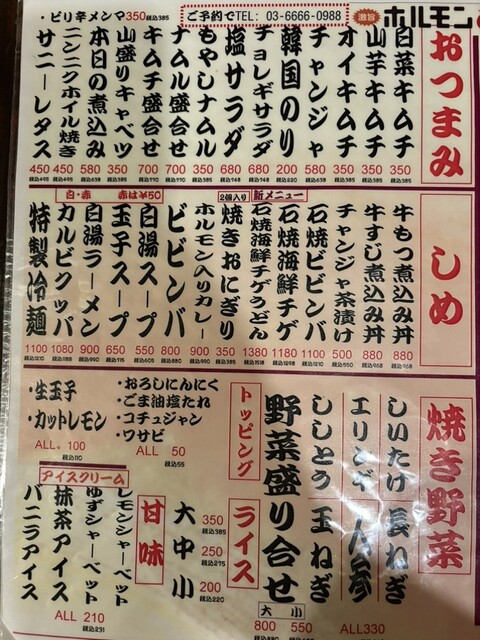 ・ピリ辛メンマ350税込385
ご予約でTEL：03-6666-0988
激旨
ホルモン
おつまみ
白菜キムチ 350 税込385
山芋キムチ 350 税込385
オイキムチ 350 税込385
チャンジャ 580 税込638
韓国のり 200 税込220
チョレギサラダ 680 税込748
塩サラダ 680 税込748
もやしナムル 350 税込385
ナムル盛合せ 700 税込770
キムチ盛合せ 700 税込770
山盛りキャベツ 350 税込385
本日の煮込み 580 税込638
ニンニクホイル焼き 450 税込495
サニーレタス 450 税込495
しめ
牛もつ煮込み丼 880 税込968
牛すじ煮込み丼 880 税込968
チャンジャ茶漬け 500 税込550
石焼ビビンバ 1100 税込1210
新メニュー
石焼海鮮チゲ 1180 税込1298
石焼海鮮チゲうどん 1380 税込1518
2個入り
焼きおにぎり 350 税込385
ホルモン入りカレー 900 税込990
ビビンバ 800 税込880
白・赤 赤は¥50
白湯スープ 550 税込605
玉子スープ 650 税込715
白湯ラーメン 900 税込990
カルビクッパ 1080 税込1188
特製冷麺 1100 税込1210
焼き野菜
しいたけ
長ねぎ
エリンギ
人参
ししとう
玉ねぎ
ALL330
野菜盛り合せ
大 800 税込880
小 550 税込605
トッピング
・おろしにんにく
・ごま油塩たれ
・コチュジャン
・ワサビ
ALL 50
税込55
・生玉子
・カットレモン
ALL 100
税込110
ライス
大 350 税込385
中 250 税込275
小 200 税込220
甘味
レモンシャーベット
ゆずシャーベット
アイスクリーム
抹茶アイス
バニラアイス
ALL 210
税込231